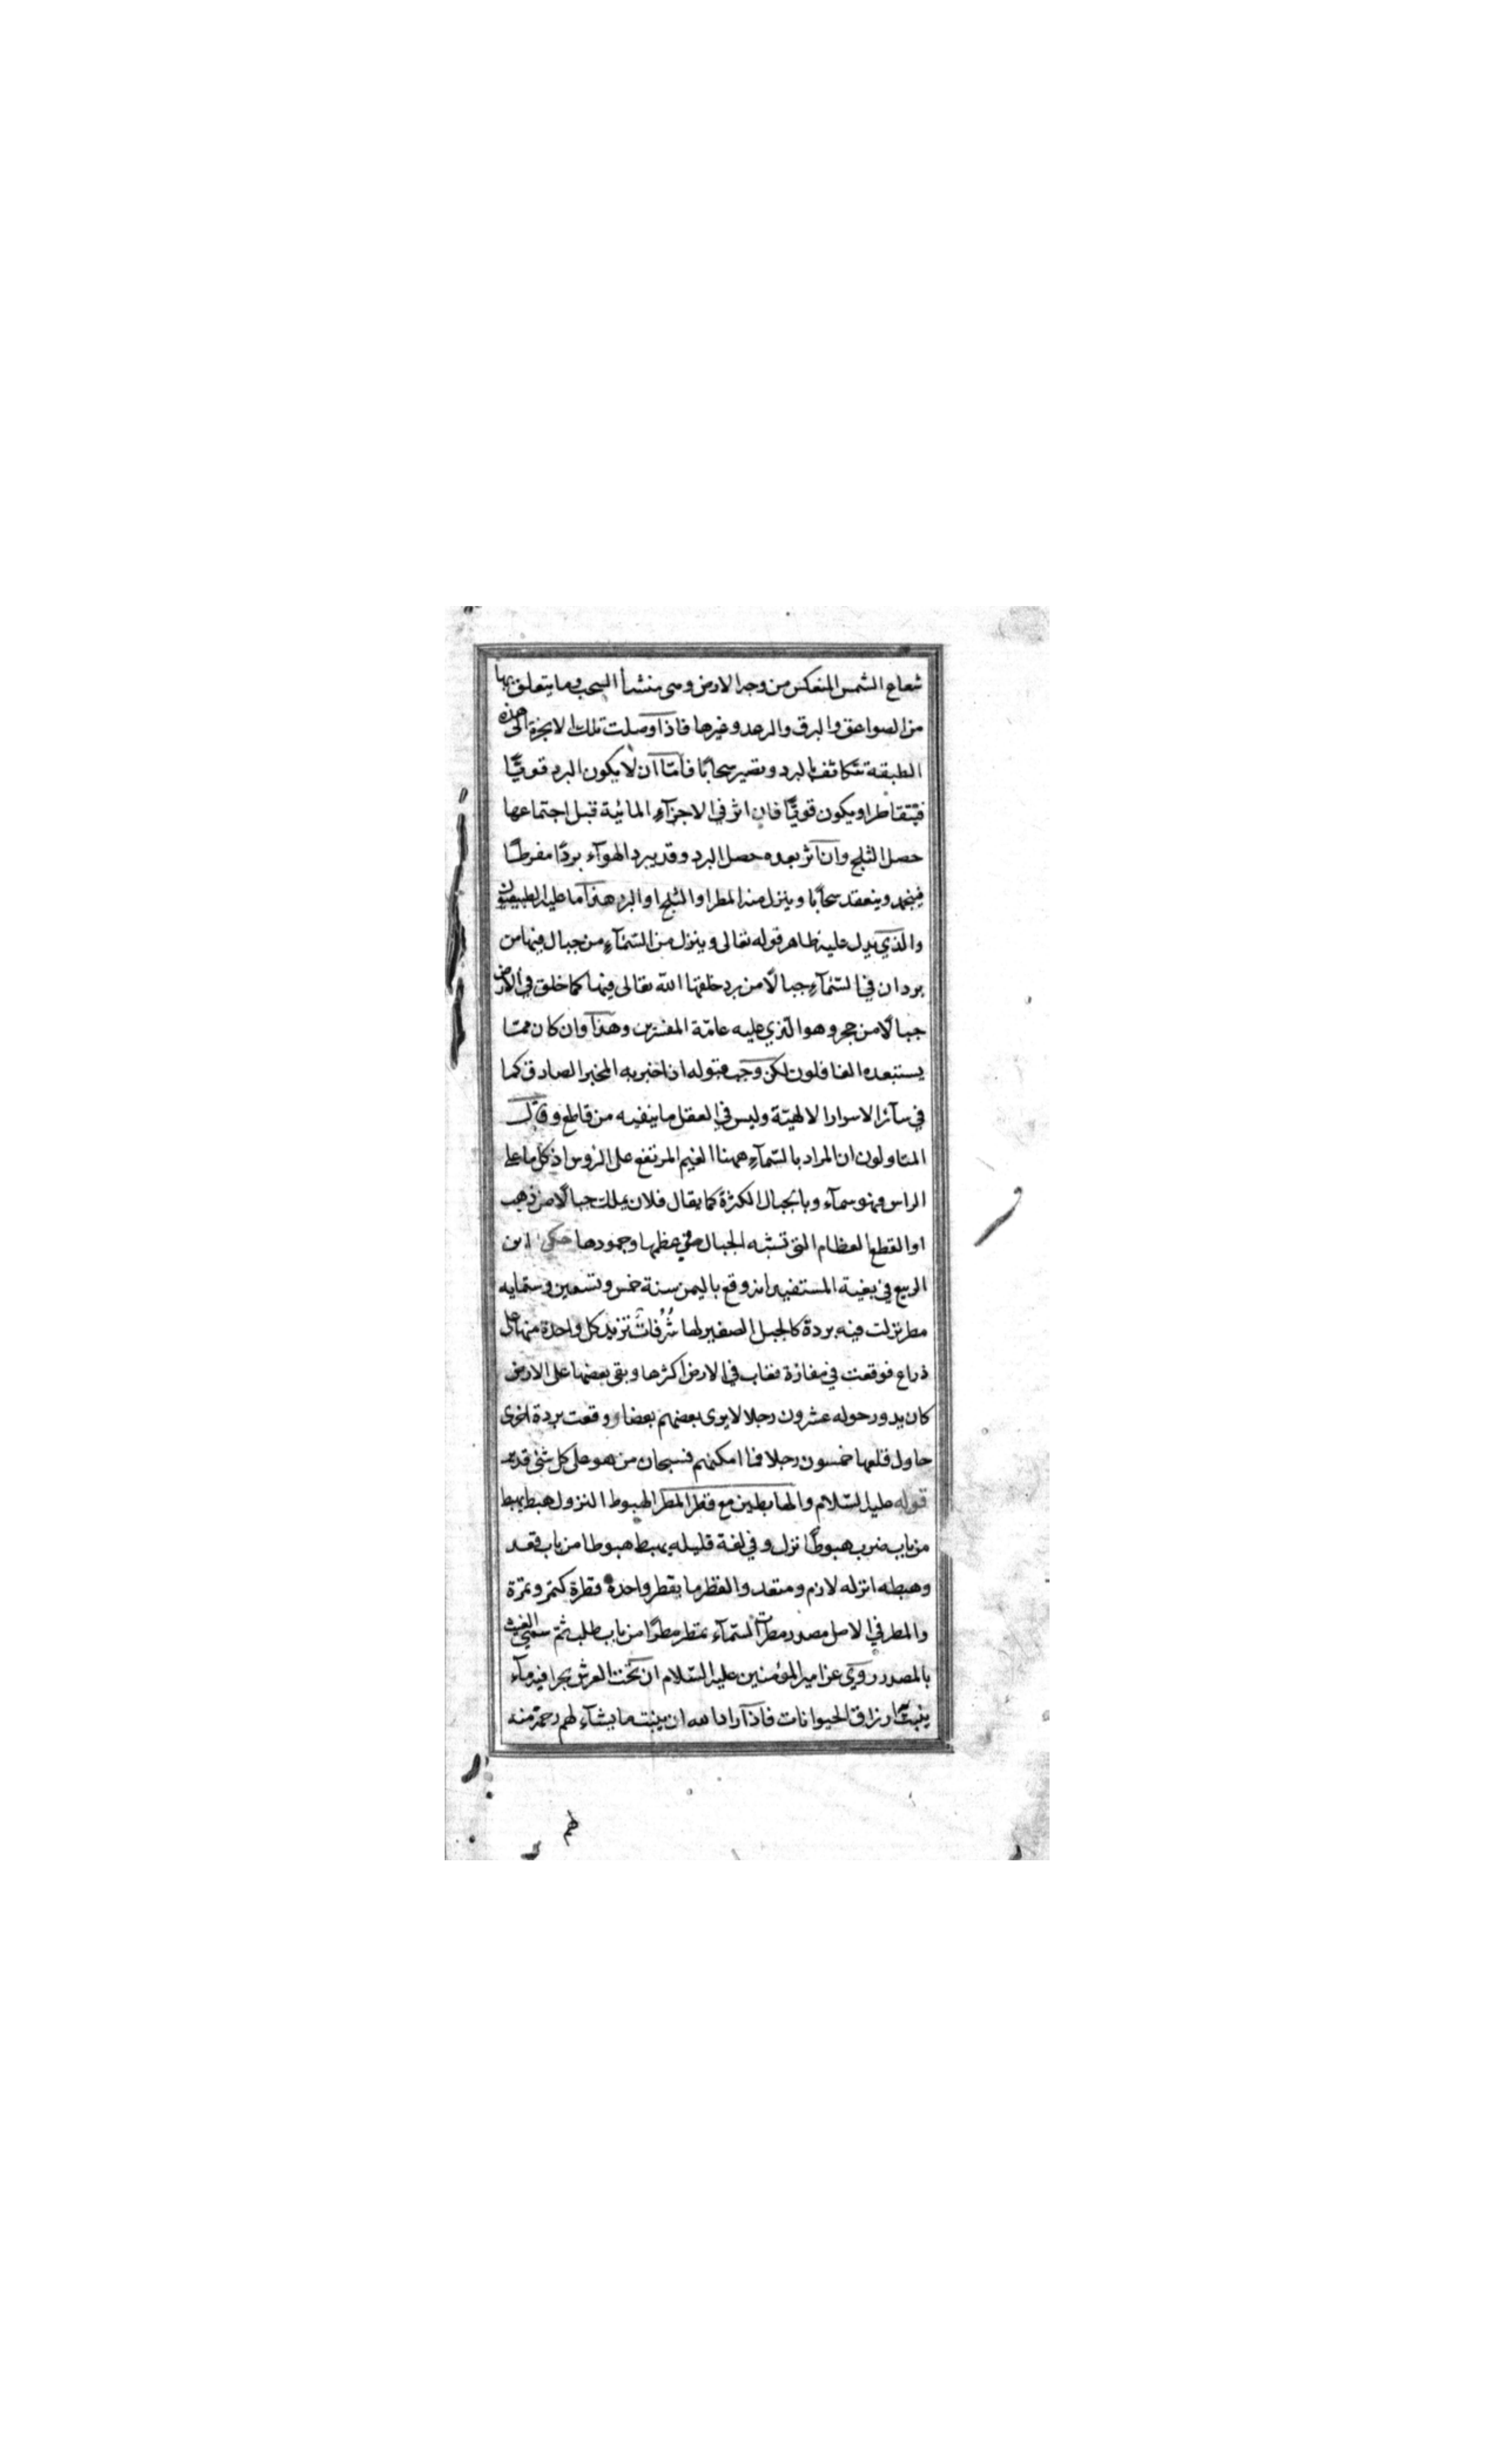 شعاع الشمس المنعكس من وجه الارض وهى منشأ السحب وما يتعلق بها
من الصواعق والبرق والرعد وغيرها فاذا وصلت تلك الابخرة الى هذه
الطبقة تتكاثف بالبرد وتصير سحابًا فامّا ان لا يكون البرد قويًّا
فيتقاطر او يكون قويًّا فان اثر في الاجزآء المائية قبل اجتماعها
حصل الثلج وان اثر بعده حصل البرد وقد يبرد الهوآء بردًا مفرطًا
فينجمد وينعقد سحابًا وينزل منه المطر او الثلج او البرد هذا ما عليه الطبيعيون
والذي يدل عليه ظاهر قوله تعالى وينزل من السّمآء من جبال فيها من
برد ان في السّمآء جبالًا من برد خلقها الله تعالى فيها كما خلق في الارض
جبالًا من حجر وهو الّذي عليه عامّة المفسّرين وهذا وان كان ممّا
يستبعده الغافلون لكن وجب قبوله اذ اخبر به المخبر الصادق كما
في سآئر الاسرار الالهيّة وليس في العقل ما ينفيه من قاطع وقال
المتاولون ان المراد بالسّمآء ههنا الغيم المرتفع على الرؤس اذ كل ما على
الراس فهو سمآء وبالجبال الكثرة كما يقال فلان يملك جبالًا من ذهب
او القطع العظام التي تشبه الجبال في عظمها وجمودها حكى ابن
الربيع في بغية المستفيد انه وقع باليمن سنة خمس وتسعين وستمايه
مطر نزلت فيه بردة كالجبل الصغير لها شُرُفات تزيد كل واحدة منها على
ذراع فوقعت في مفازة فغاب في الارض اكثرها وبقى بعضها على الارض
كان يدور حوله عشرون رجلا لا يرى بعضهم بعضا ووقعت بردة اخرى
حاول قلعها خمسون رجلا فما امكنهم فسبحان من هو على كل شئ قدير
قوله عليه السّلام والهابطين مع قطر المطر الهبوط النزول هبط يهبط
من باب ضرب هبوطًا نزل وفي لغة قليلة يهبط هبوطا من باب قعد
وهبطه انزله لازم ومتعد والقطر ما يقطر واحدة قطرة كتمر وتمرة
والمطر في الاصل مصدر مطرت السّمآء تمطر مطرًا من باب طلب ثمّ سمّي الغيث
بالمصدر روي عن امير المؤمنين عليه السّلام ان تحت العرش بحرا فيه مآء
ينبت ارزاق الحيوانات فاذا اراد الله ان ينبت ما يشآء لهم رحمة منه
لهم